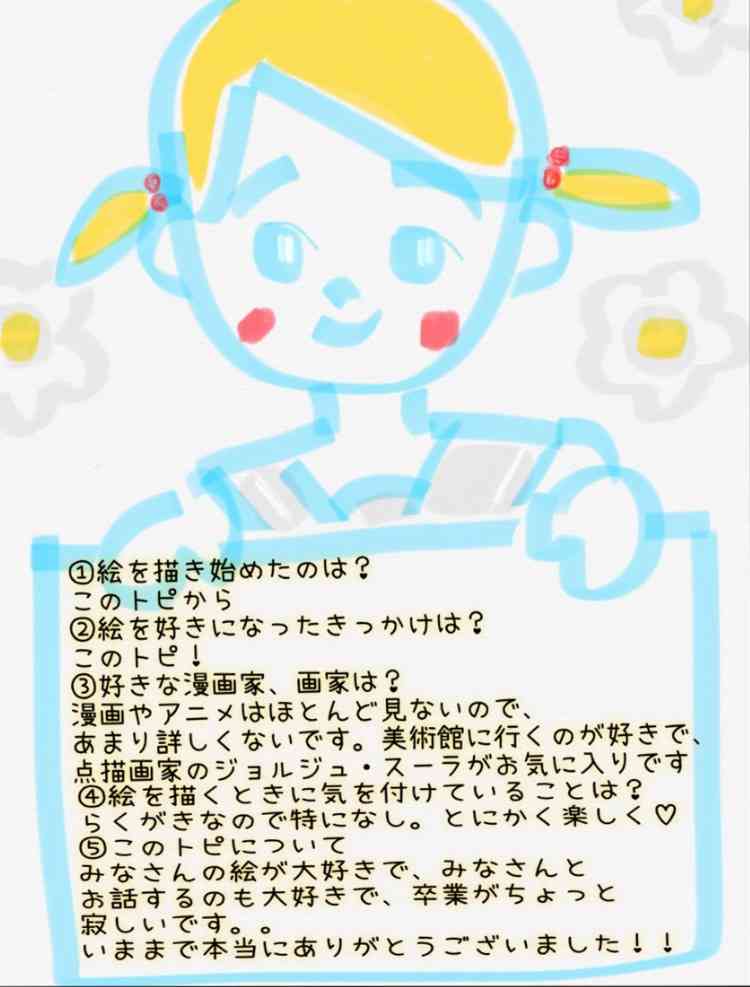 ①絵を描き始めたのは?
このトピから
②絵を好きになったきっかけは?
このトピ!
③好きな漫画家、画家は?
漫画やアニメはほとんど見ないので、
あまり詳しくないです。美術館に行くのが好きで、
点描画家のジョルジュ・スーラがお気に入りです
④絵を描くときに気を付けていることは?
らくがきなので特になし。とにかく楽しく♡
⑤このトピについて
みなさんの絵が大好きで、みなさんと
お話するのも大好きで、卒業がちょっと
寂しいです。。
いままで本当にありがとうございました!!